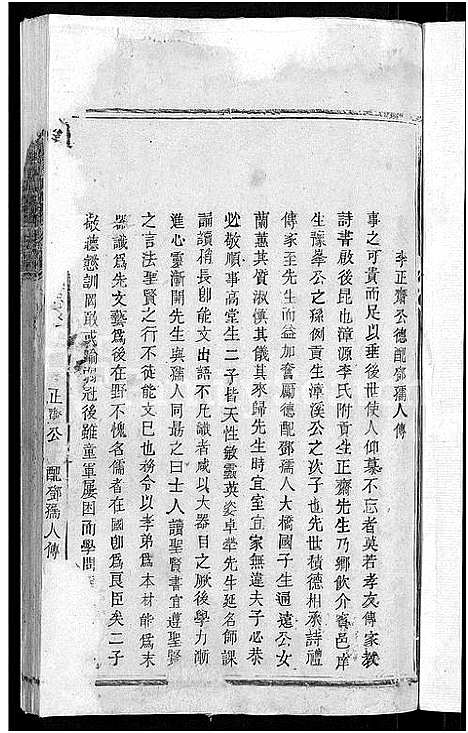 李正齋公德配鄧孺人傳
事之可貴而足以垂後世使人仰慕不忘者莫若孝友傳家敎
詩書啟後昆也漳源李氏附貢生正齋先生乃鄉飲介賓邑庠
生豫峯公之孫例貢生漳溪公之次子也先世積德相承詩禮
傳家至先生而益加奮勵德配鄧孺人大橋國子生通遠公女
蘭蕙其質淑愼其儀其來歸先生時宜室宜家無違夫子必恭
必敬順事高堂生二子皆天性敏靈英姿卓犖先生延名師課
誦讀稍長卽能文出語不凡識者咸以大器目之厥後學力漸
進心靈漸開先生與孺人同勗之曰士人讀聖賢書宜遵聖賢
之言法聖賢之行不徒能文也務令以孝弟爲本材能爲末
器識爲先文藝爲後在野不愧名儒者在國卽爲良臣矣二子
敬聽懲訓罔敢或踰弱冠後雖童軍屢困而學問
正齋公 配鄧孺人傳